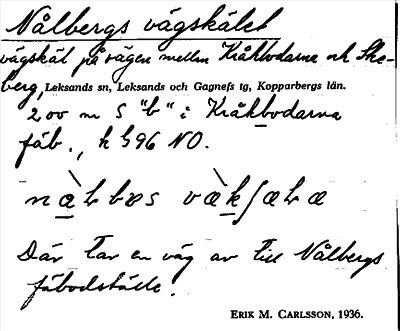 Nålbergs vägskälet
vägskäl på vägen mellan Kråkbodarna och Ske-
berg, Leksands sn, Leksands och Gagnefs tg, Kopparbergs län.
200 m S "b" i Kråkbodarna
fäb., h 396 NO.
Där tar en väg av till Nålbergs
fäbodställe.
ERIK M. CARLSSON, 1936.